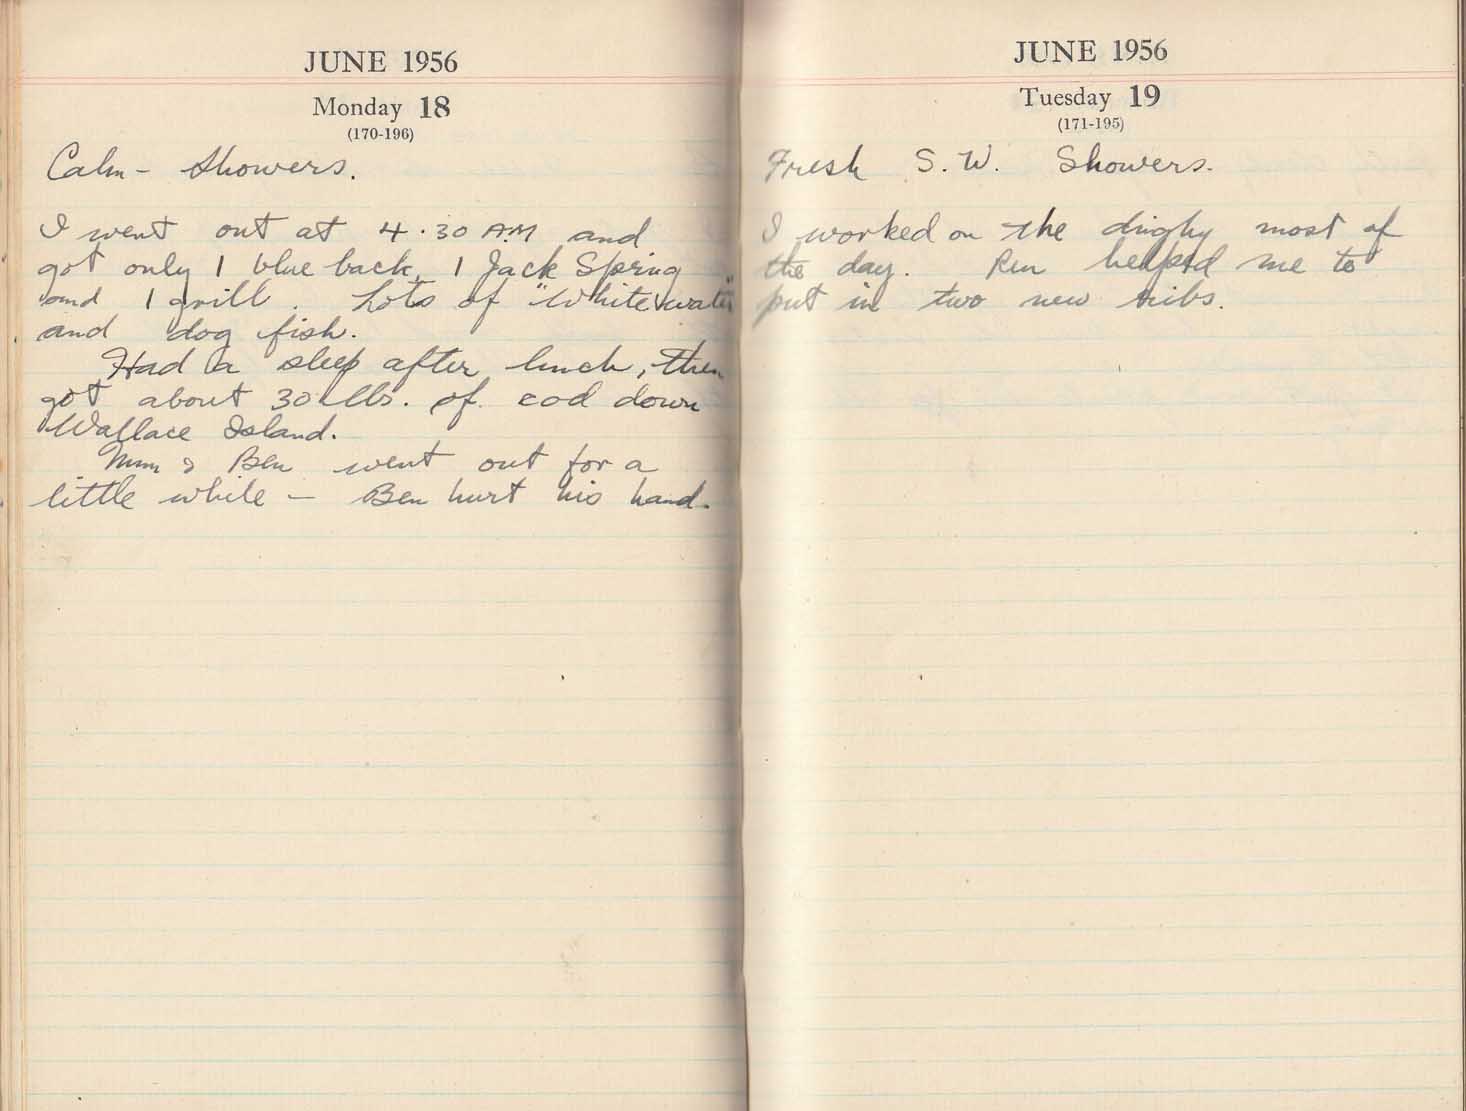 JUNE 1956
Monday 18
(170-196)
Calm - Showers.
I went out at 4.30 A.M and
got only 1 blue back, 1 Jack Spring
and 1 grill. Lots of "White water"
and dog fish.
Had a sleep after lunch, then
got about 30 lbs. of cod down
Wallace Island.
Mum & Ben went out for a
little while - Ben hurt his hand.
JUNE 1956
Tuesday 19
(171-195)
Fresh S.W. Showers.
I worked on the dinghy most of
the day. helped me to
put in two new ribs.